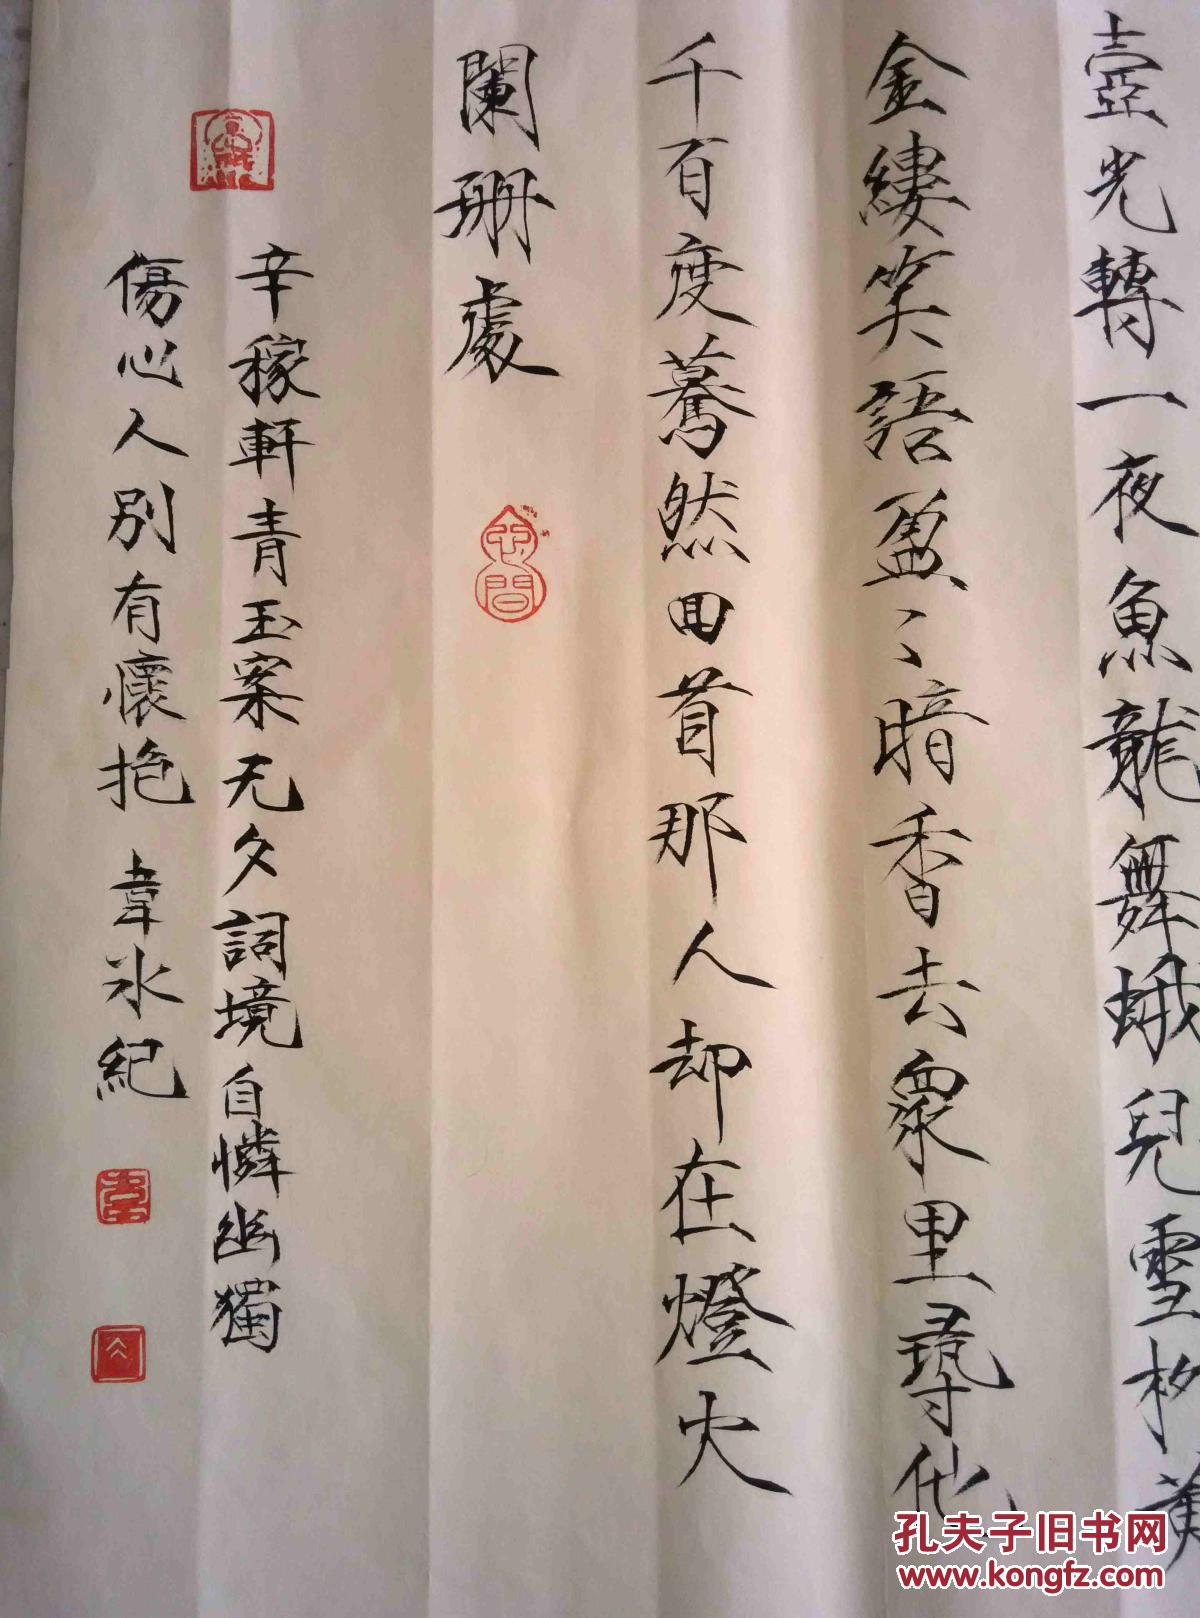 壺光轉一夜魚龍舞蛾兒雪柳黃
金縷笑語盈〻暗香去衆里尋他
千百度驀然回首那人却在燈火
闌珊處
辛稼軒青玉案元夕詞境自憐幽獨
傷心人別有懷抱 韋冰紀
孔夫子旧书网
www.kongfz.com